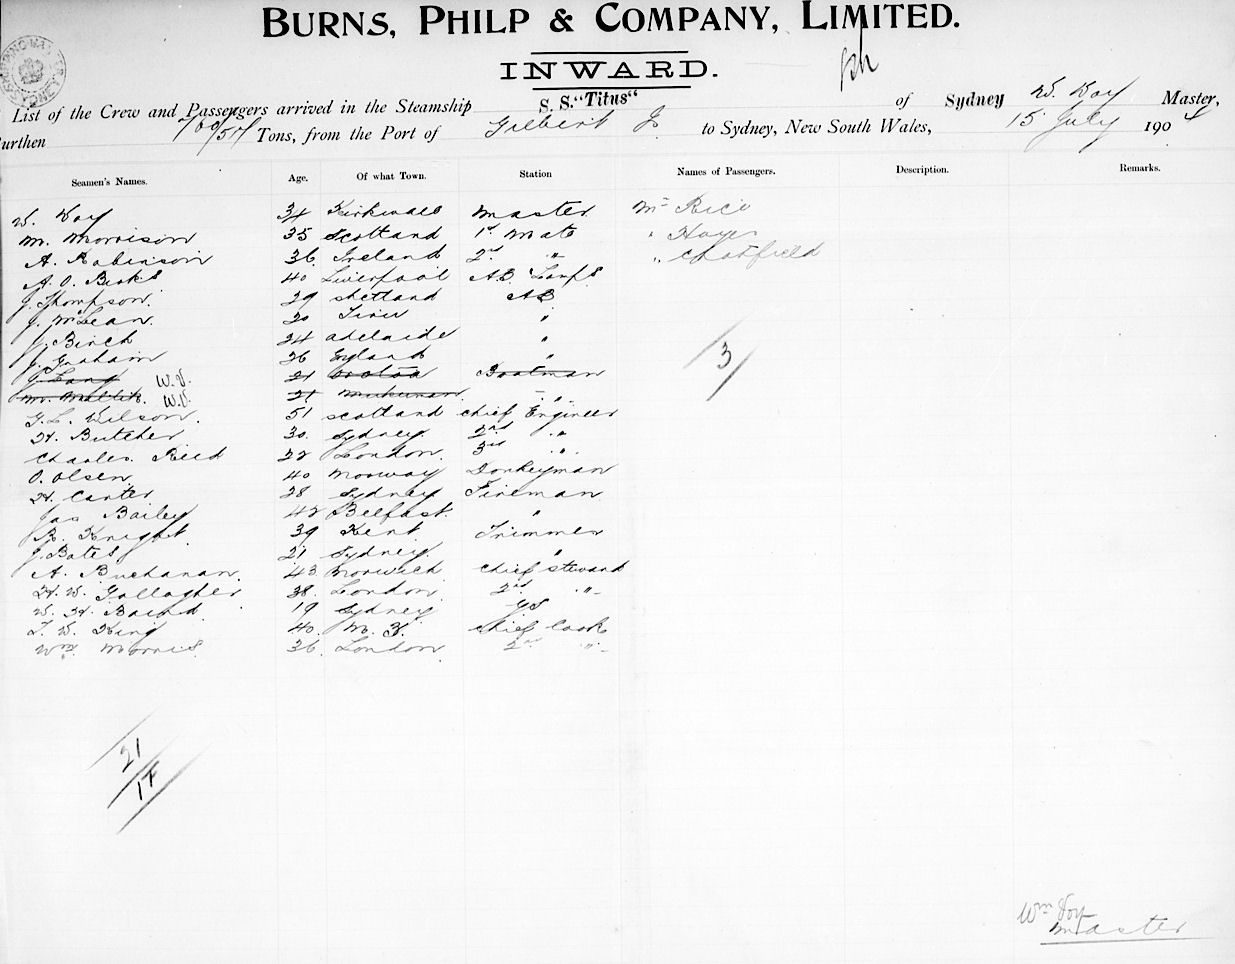 BURNS, PHILP & COMPANY, LIMITED.
INWARD.
List of the Crew and Passengers arrived in the Steamship S. S. "Titus" of Sydney W. Voy Master,
urthen 760/57 Tons, from the Port of Gilbert Is to Sydney, New South Wales, 15 July 1904
Seamen's Names. Age. Of what Town. Station Names of Passengers. Description. Remarks.
W. Voy 34 Kirkwall Master Mr Rice
M. Morrison 35 Scotland 1st Mate " Hayes
A. Robinson 36 Ireland 2nd " " Chatfield
A. O. Birks 40 Liverpool AB Lamps
J. Thompson 29 Shetland AB
J. McLean. 20 Tiree "
J. Birch 24 Adelaide "
J. Graham 26 England "
J. Lang W.V. 21 Boatman
W.V. 21 " "
G. L. Wilson. 51 Scotland Chief Engineer
H. Butcher 30. Sydney. 2nd "
Charles Reid 22 London. 3rd "
O. Olsen. 40 Norway Donkeyman
H. Carter 28 Sydney Fireman
Jas Bailey 42 Belfast. "
R. Knight. 39 Kent. Trimmer
J. Bates 21 Sydney. "
A. Buchanan. 43 Norwich Chief Steward
H. W. Gallagher 38. London. 2nd "
W. H. Baird. 19 Sydney GS
T. W. King 40. N. Z. Chief Cook
Wm. Morris. 36. London. 2nd "
3
21
17
Wm Voy
Master